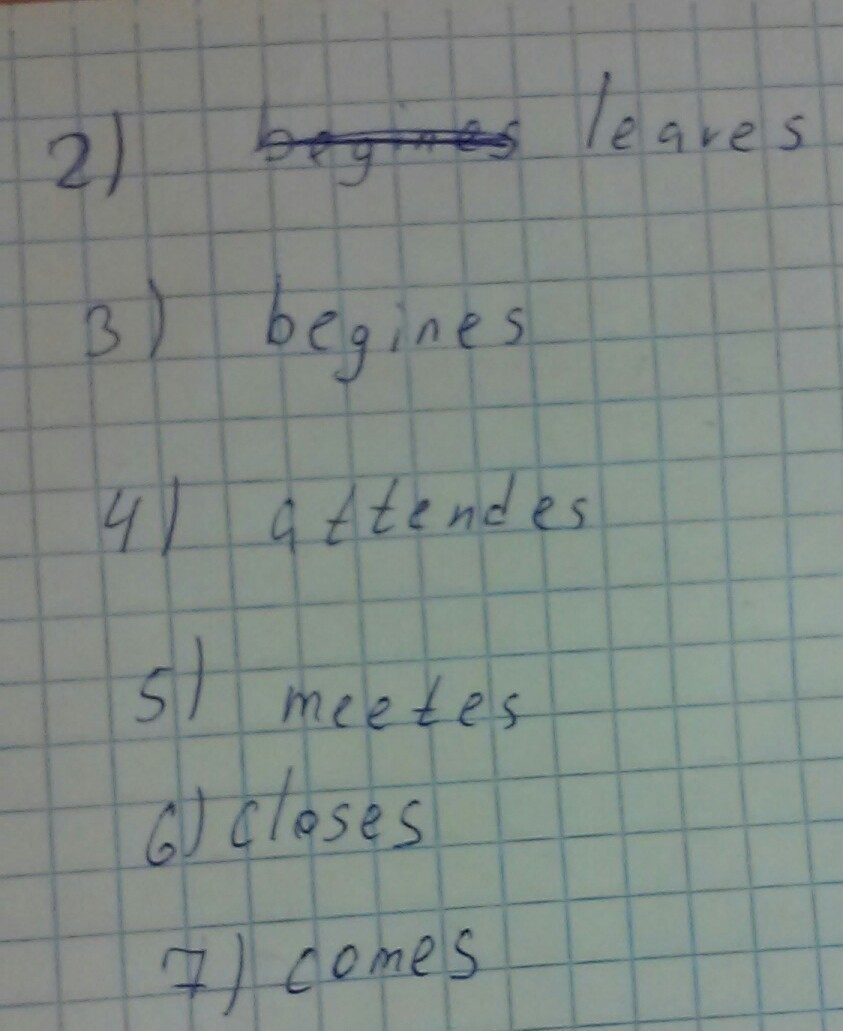 2) begines leaves
3) begines
4) attendes
5) meetes
6) closes
7) comes